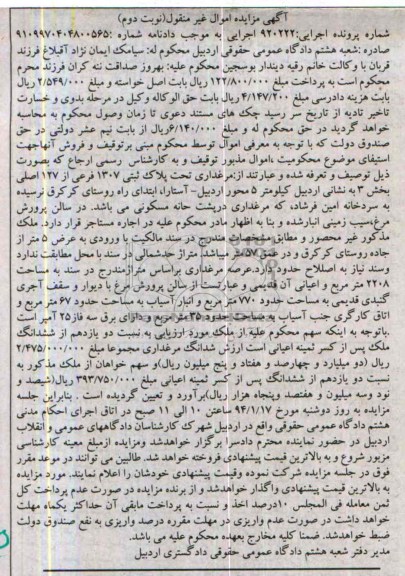 آگهی مزایده اموال غیر منقول(نوبت دوم)
شماره پرونده اجرایی:۹۲۰۲۲۲ اجرایی به موجب دادنامه شماره :۹۱۰۹۹۷۰۴۰۴۸۰۰۵۶۵
صادره :شعبه هشتم دادگاه عمومی حقوقی اردبیل محکوم له: سیامک ایمان نژاد آقبلاغ فرزند
قربان با وکالت خانم رقیه دیندار بوسجین محکوم علیه: بهروز صداقت ننه کران فرزند محرم
محکوم است به پرداخت مبلغ ۱۲۲/۸۰۰/۰۰۰ ریال بابت اصل خواسته و مبلغ ۲/۵۴۹/۰۰۰ ریال
بابت هزینه دادرسی مبلغ ۴/۱۴۷/۲۰۰ ریال بابت حق الوکاله وکیل در مرحله بدوی و خسارت
تاخیر تادیه از تاریخ سر رسید چک های مستند دعوی تا زمان وصول محکوم به محاسبه
خواهد گردید در حق محکوم له و مبلغ ۶/۱۴۰/۰۰۰ریال از بابت نیم عشر دولتی در حق
صندوق دولت که با توجه به معرفی اموال توسط محکوم مبنی برتوقیف و فروش آنهاجهت
استیفای موضوع محکومیت ،اموال مذبور توقیف و به کارشناس رسمی ارجاع که بصورت
ذیل توصیف و تعرفه شده و عبارتند از:مرغداری تحت پلاک ثبتی ۱۳۰۷ فرعی از ۱۲۷ اصلی
بخش ۳ به نشانی اردبیل کیلومتر ۵ محور اردبیل- آستارا، ابتدای راه روستای کرکرق نرسیده
به سردخانه امین فرشاد، که مرغداری درپشت خانه مسکونی می باشد. در سالن پرورش
مرغ،سیب زمینی انبارشده و بنا به اظهار مادر محکوم علیه در اجاره مستاجر قرار دارد. ملک
مذکور غیر محصور و مطابق مشخصات مندرج در سند مالکیت با ورودی به عرض ۵ متر از
جاده روستای کرکرق و در عمق ۵۷ متر میباشد. متراژ عدشمالی در سند با محل مطابقت ندارد
وسند نیاز به اصلاح حدود دارد.عرصه مرغداری براساس متراژمندرج در سند به مساحت
۲۲۰۸ متر مربع و اعیانی آن قدیمی و عبارتست از سالن پرورش مرغ با دیوار و سقف آجری
گنبدی قدیمی به مساحت حدود ۷۷۰ متر مربع و انبار آسیاب به مساحت حدود ۶۷ متر مربع و
اتاق کارگری جنب آسیاب به مساحت حدود ۳۵ متر مربع و دارای برق سه فاز ۲۵ آمپر است
.باتوجه به اینکه سهم محکوم علیه از ملک مورد ارزیابی به نسبت دو یازدهم از ششدانگ
ملک پس از کسر ثمنیه اعیانی است ارزش شدانگ مرغداری مجموعا مبلغ ۲/۴۷۵/۰۰۰/۰۰۰
ریال (دو میلیارد و چهارصد و هفتاد و پنج میلیون ریال)و سهم خواهان از ملک مذکور به
نسبت دو یازدهم از ششدانگ پس از کسر ثمنیه اعیانی مبلغ ۳۹۳/۷۵۰/۰۰۰ ریال(شیصد و
نود وسه میلیون و هفتصد وپنجاه هزار ریال)برآورد و تعیین گردیده است . بنابراین جلسه
مزایده به روز دوشنبه مورخ ۹۴/۱/۱۷ ساعتی ۱۰ الی ۱۱ صبح در اتاق اجرای احکام مدنی
هشتم دادگاه عمومی حقوقی واقع در اردبیل شهرک کارشناسان دادگاههای عمومی و انقلاب
اردبیل در حضور نماینده محترم دادسرا برگزار خواهدشد ومزایده ازمبلغ معینه کارشناسی
مزبور شروع و به بالاترین قیمت پیشنهادی فروخته خواهد شد. طالبین می توانند در موعد مقرر
فوق در جلسه مزایده شرکت نموده وقیمت پیشنهادی خودشان را اعلام نمایند. مورد مزایده
به بالاترین قیمت پیشنهادی واگذار خواهدشد و از برنده مزایده در صورت عدم پرداخت کل
ثمن معامله فی المجلس ۱۰درصد اخذ و نسبت به پرداخت مابقی آن حداکثر یکماه مهلت
خواهد داشت در صورت عدم واریزی در مهلت مقرره درصد واریزی به نفع صندوق دولت
ضبط خواهدشد. ضمنا کلیه مخارج بعهده محکوم علیه می باشد.
مدیر دفتر شعبه هشتم دادگاه عمومی حقوقی دادگستری اردبیل